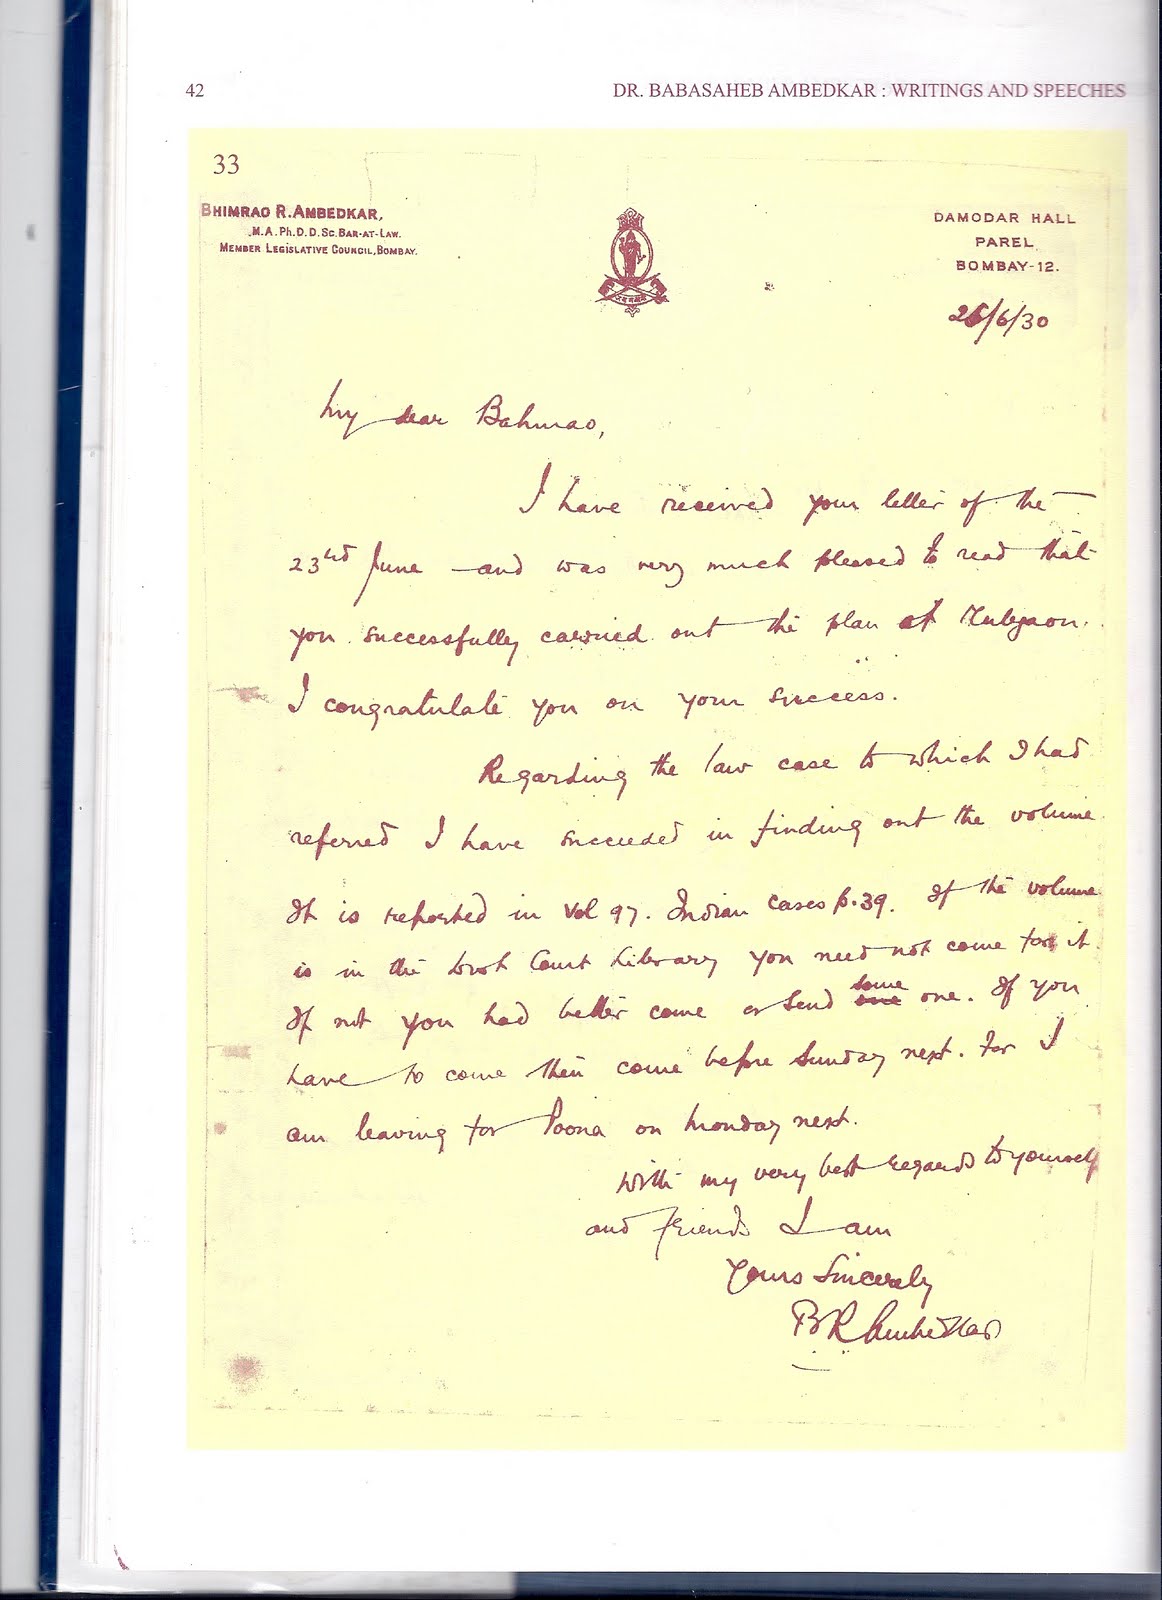 42
DR. BABASAHEB AMBEDKAR : WRITINGS AND SPEECHES
33
BHIMRAO R. AMBEDKAR,
M.A. Ph.D. D.Sc. BAR-AT-LAW.
MEMBER LEGISLATIVE COUNCIL, BOMBAY.
DAMODAR HALL
PAREL
BOMBAY-12.
/6/30
My dear Bahurao,
I have received your letter of the
23rd June and was very much pleased to read that
you successfully carried out the plan at
I congratulate you on your success.
Regarding the law case to which I had
referred I have succeeded in finding out the volume
It is reported in Vol 97. Indian cases p. 39. If the volume
is in the Court Library you need not come for it.
If not you had better come or send some one. If you
have to come then come before Sunday next. For I
am leaving for Poona on Monday next.
With my very best regards to yourself
and friends I am
Yours Sincerely
B R Ambedkar